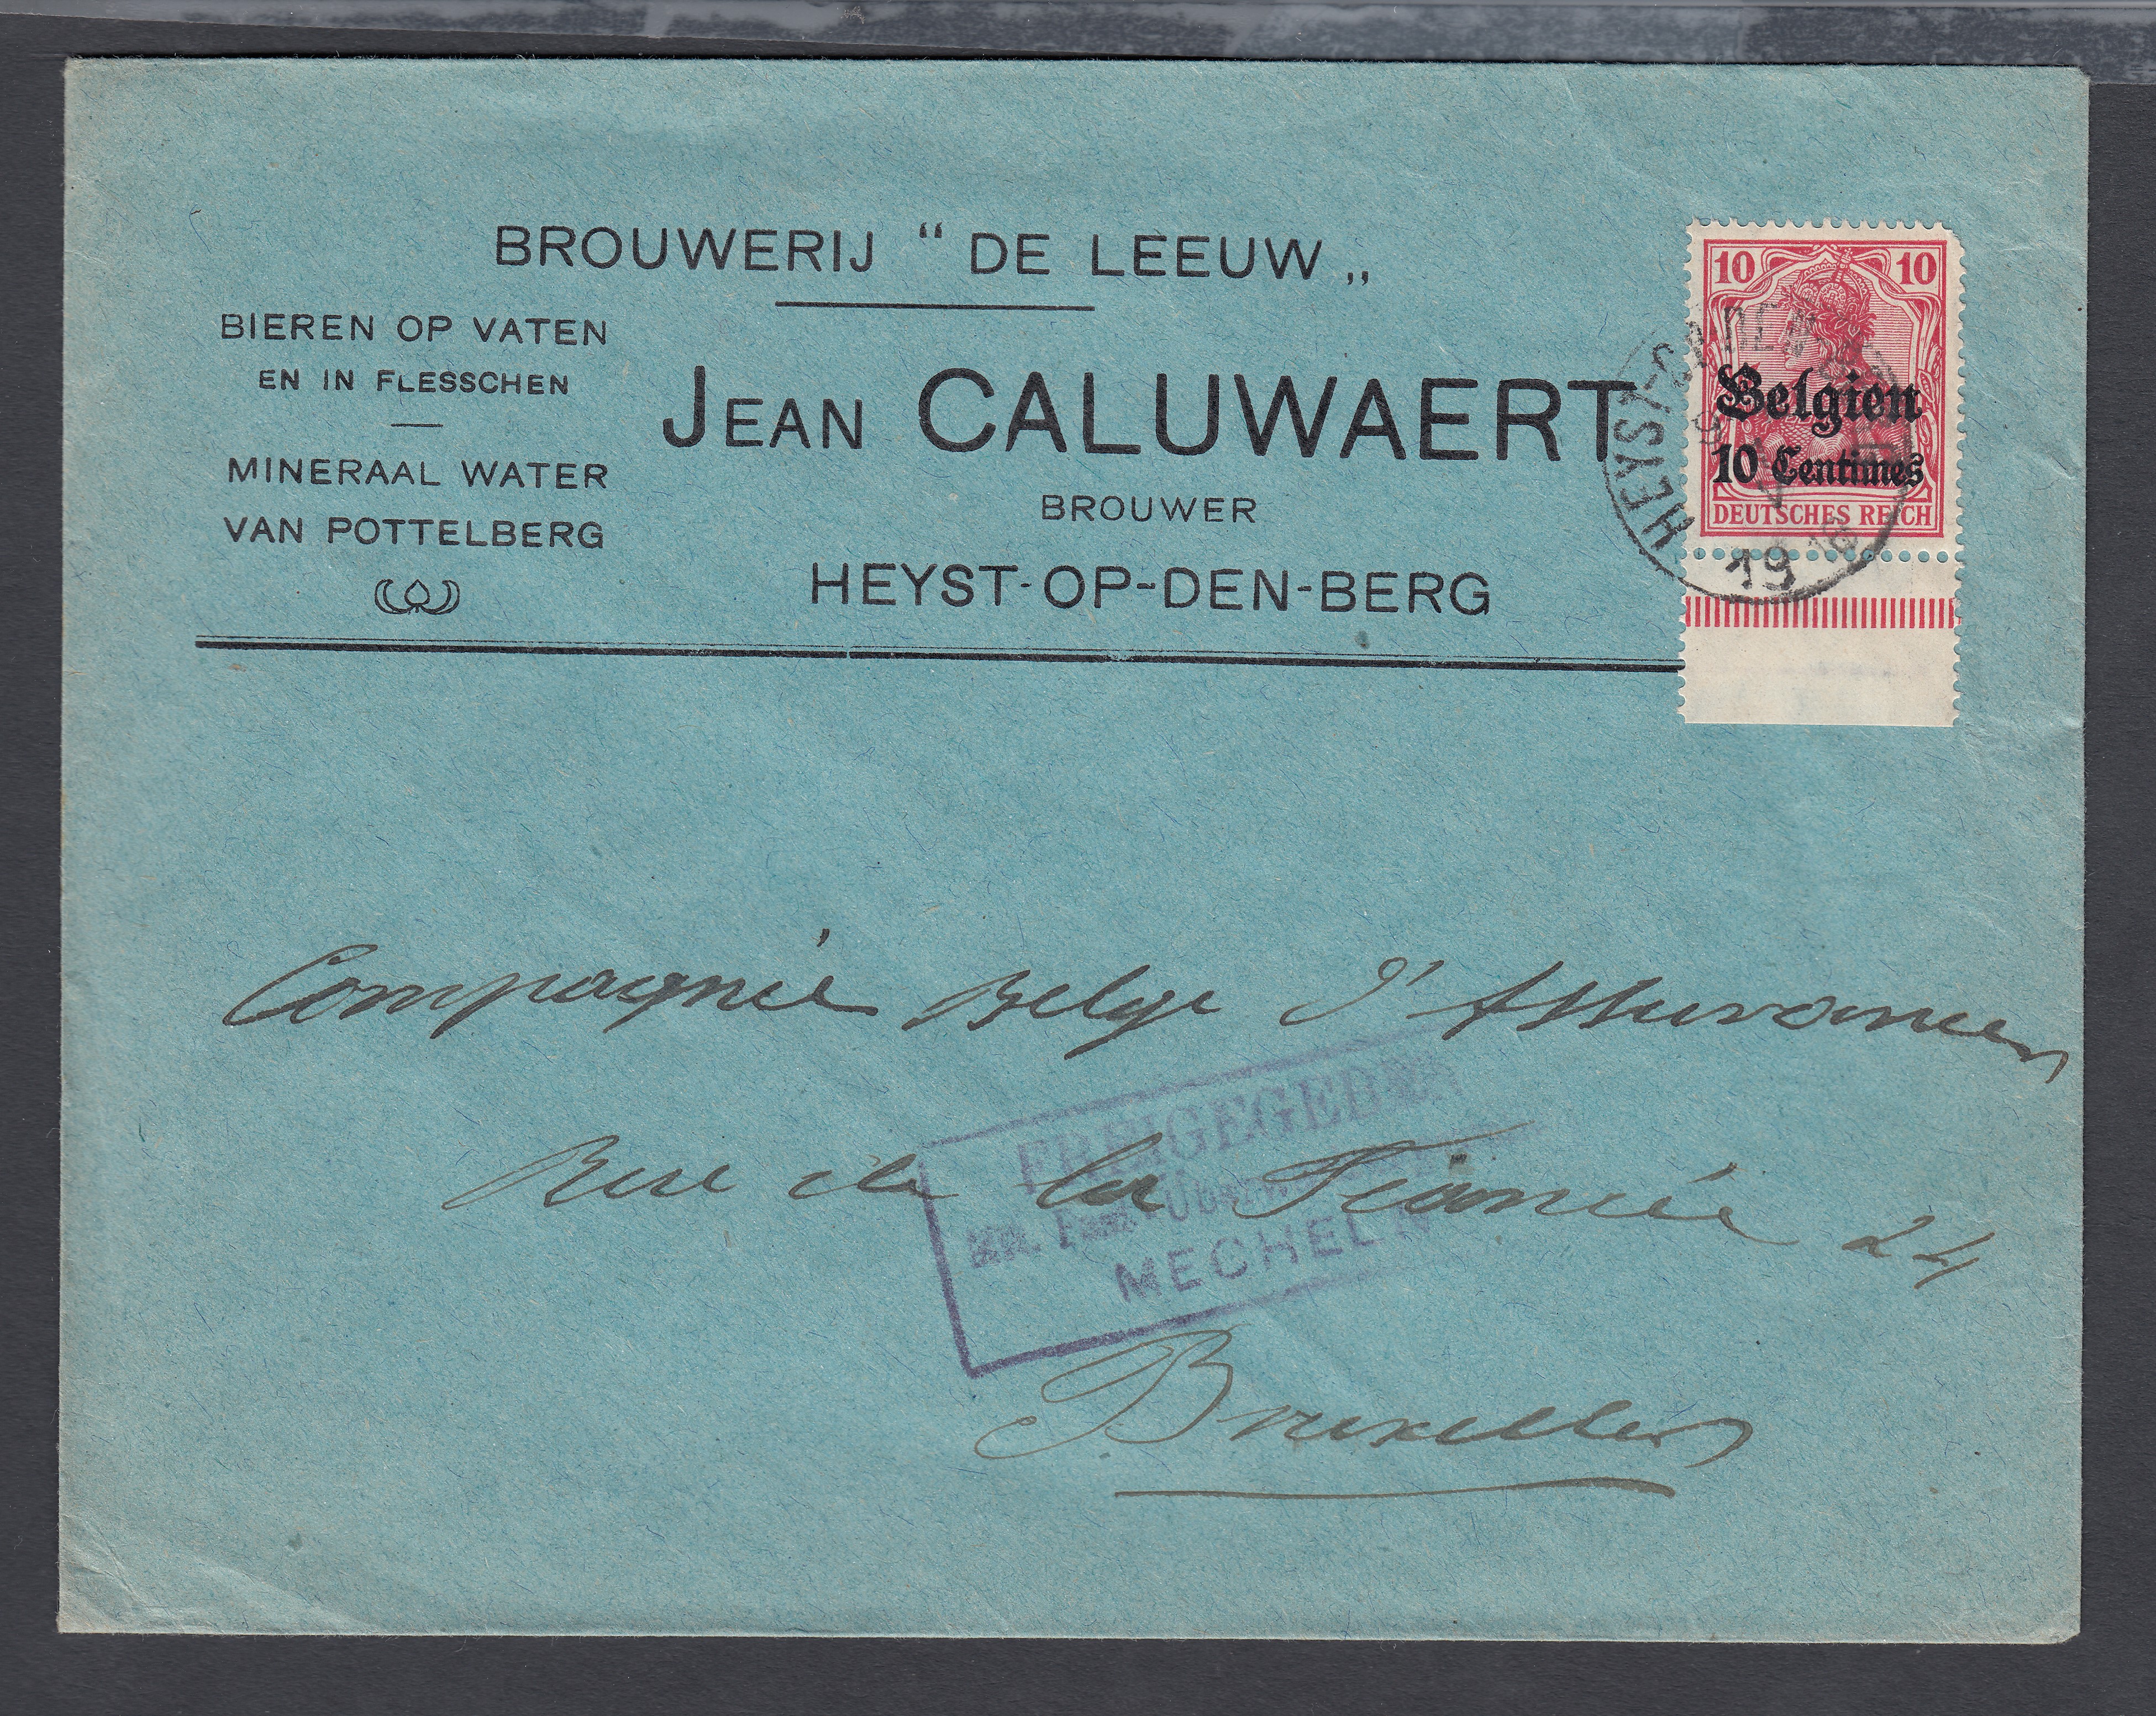 BROUWERIJ “ DE LEEUW „
BIEREN OP VATEN
EN IN FLESSCHEN
MINERAAL WATER
VAN POTTELBERG
JEAN CALUWAERT
BROUWER
HEYST-OP-DEN-BERG
10 10
Belgien
10 Centimes
DEUTSCHES REICH
HEYST-OP-DEN
19
Compagnie Belge d'Assurances
Rue de la Fiancée 24
Bruxelles
FREIGEGEBEN
MECHELN